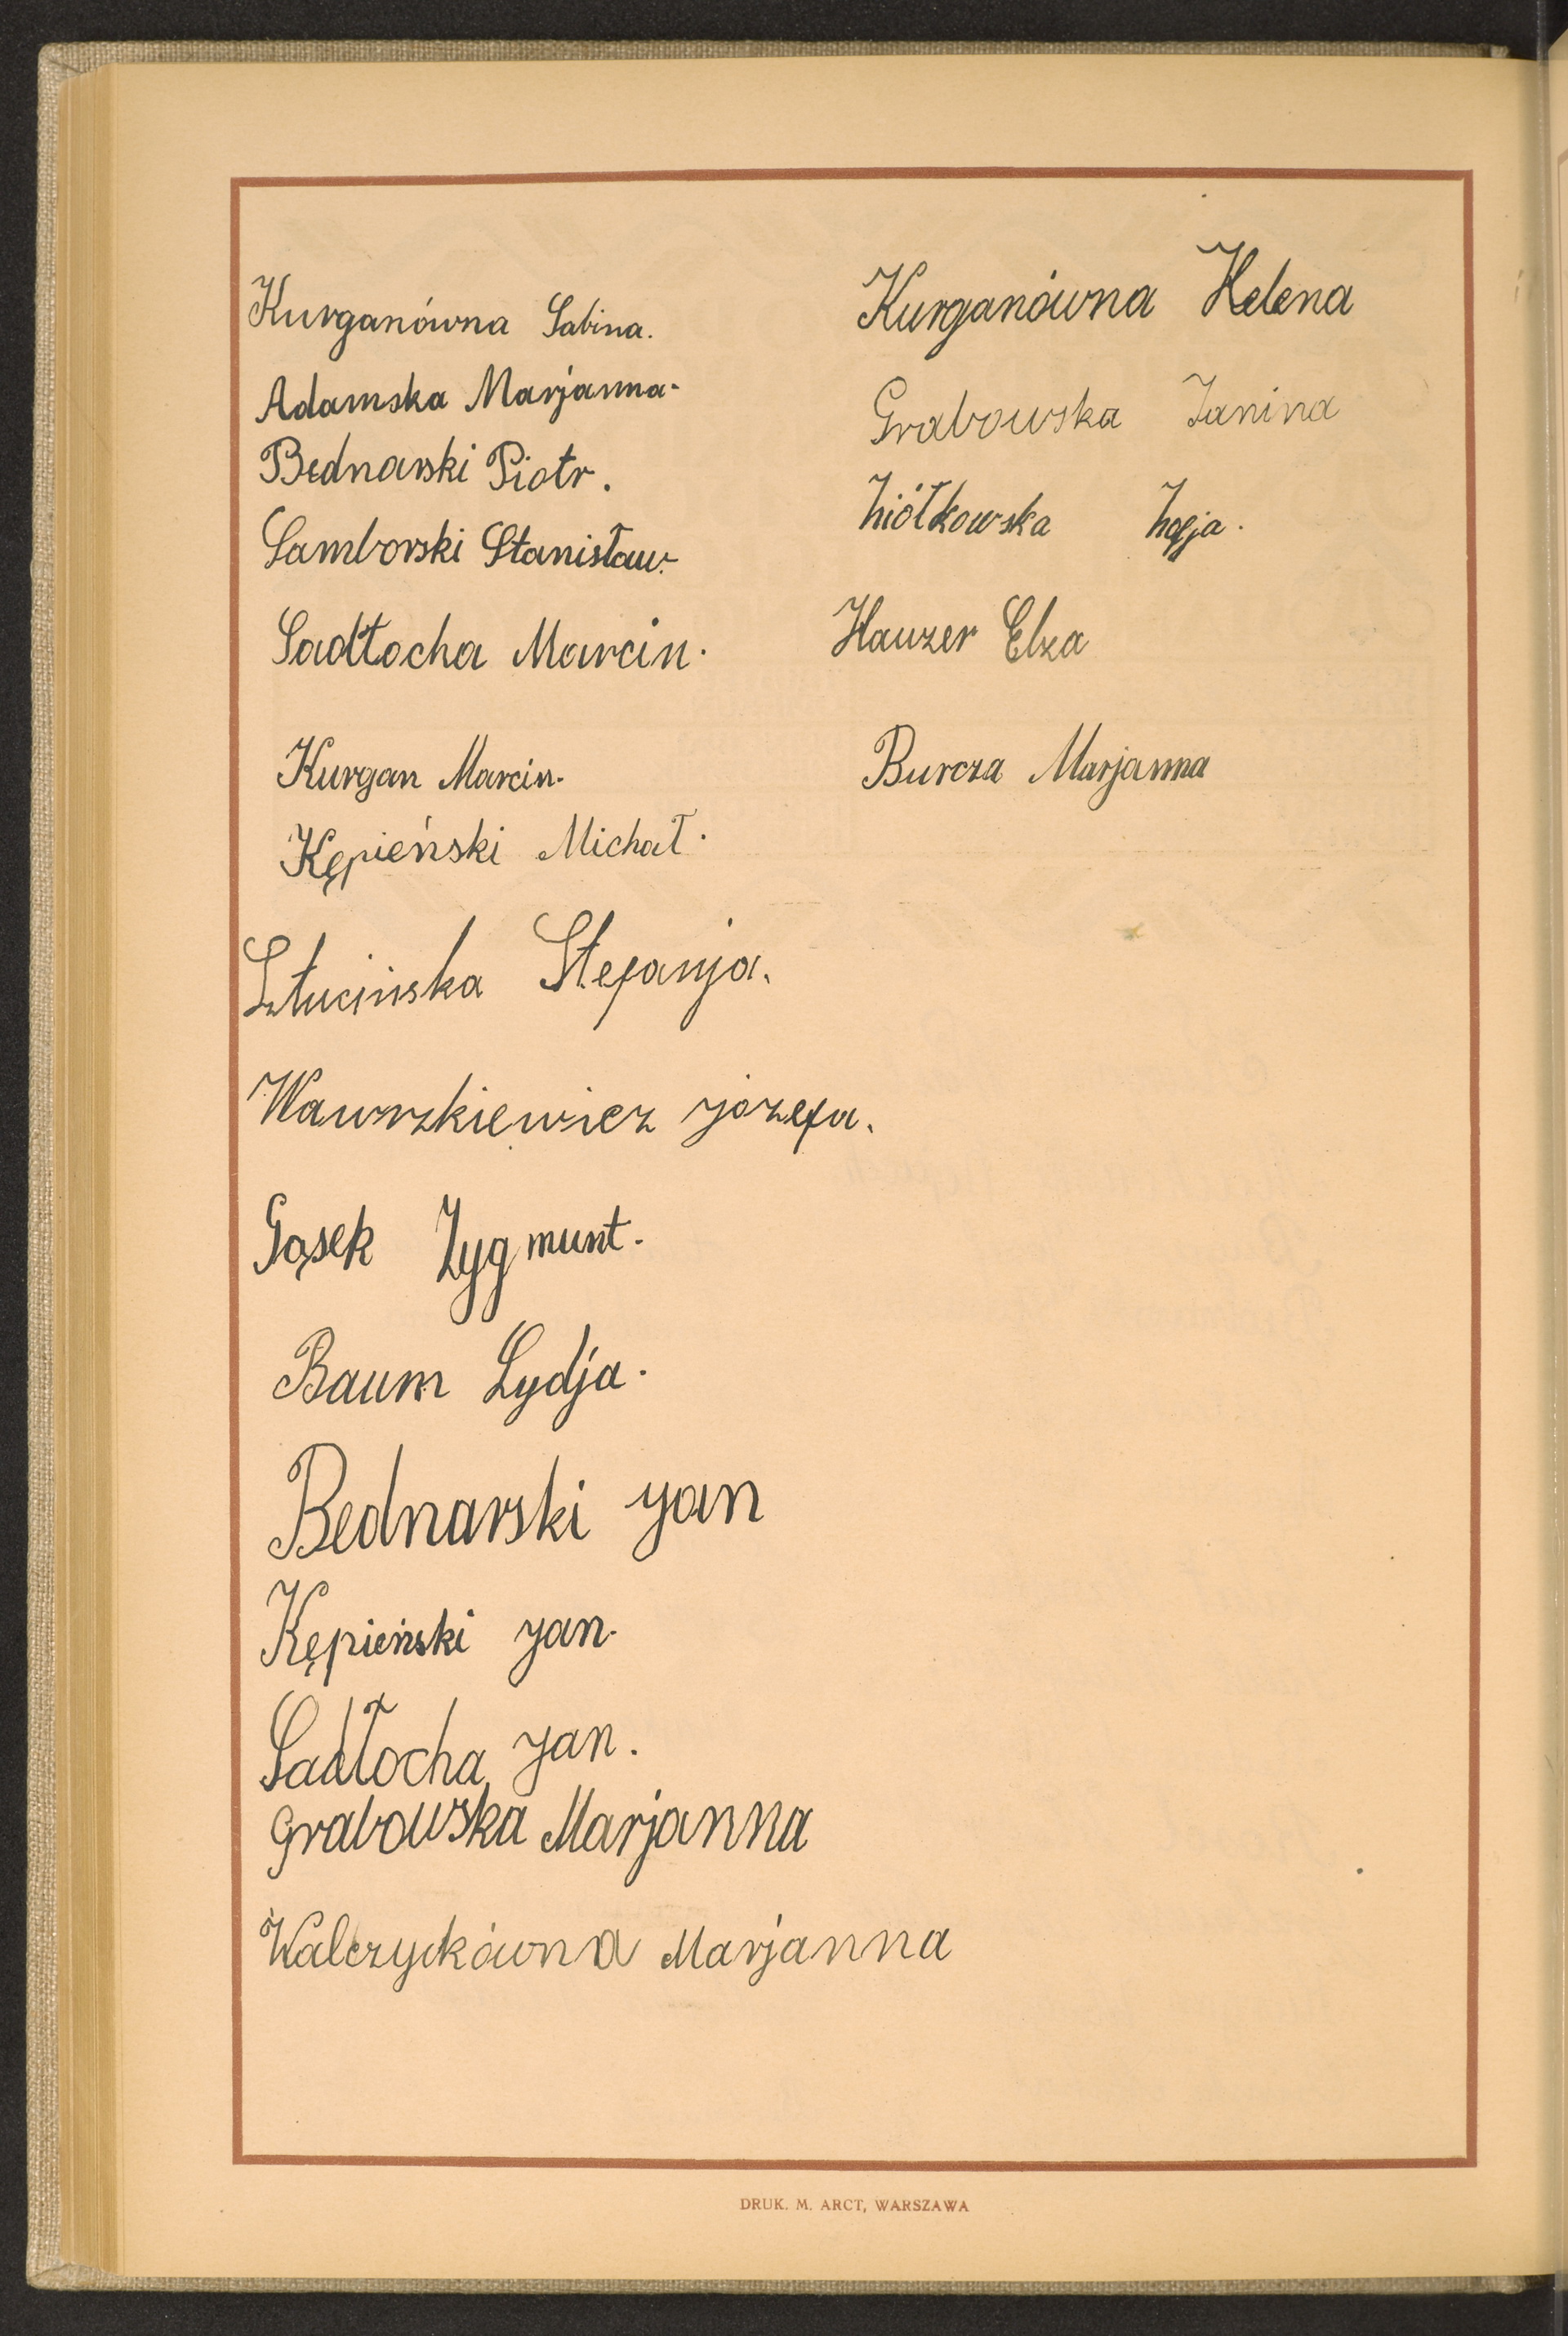 Kurganówna Sabina.
Adamska Marjanna.
Bednarski Piotr.
Samborski Stanisław.
Sadłocha Marcin.
Kurgan Marcin.
Kępieński Michał.
Sztucińska Stefanja.
Wawrzkiewicz józefa.
Gąsek Zygmunt.
Baum Lydja.
Bednarski Jan
Kępieński Jan.
Sadłocha Jan.
Grabowska Marjanna
Walczykówna Marjanna
Kurganówna Helena
Grabowska Janina
Ziółkowska Zofja.
Hauzer Elza
Burcza Marjanna
DRUK. M. ARCT, WARSZAWA